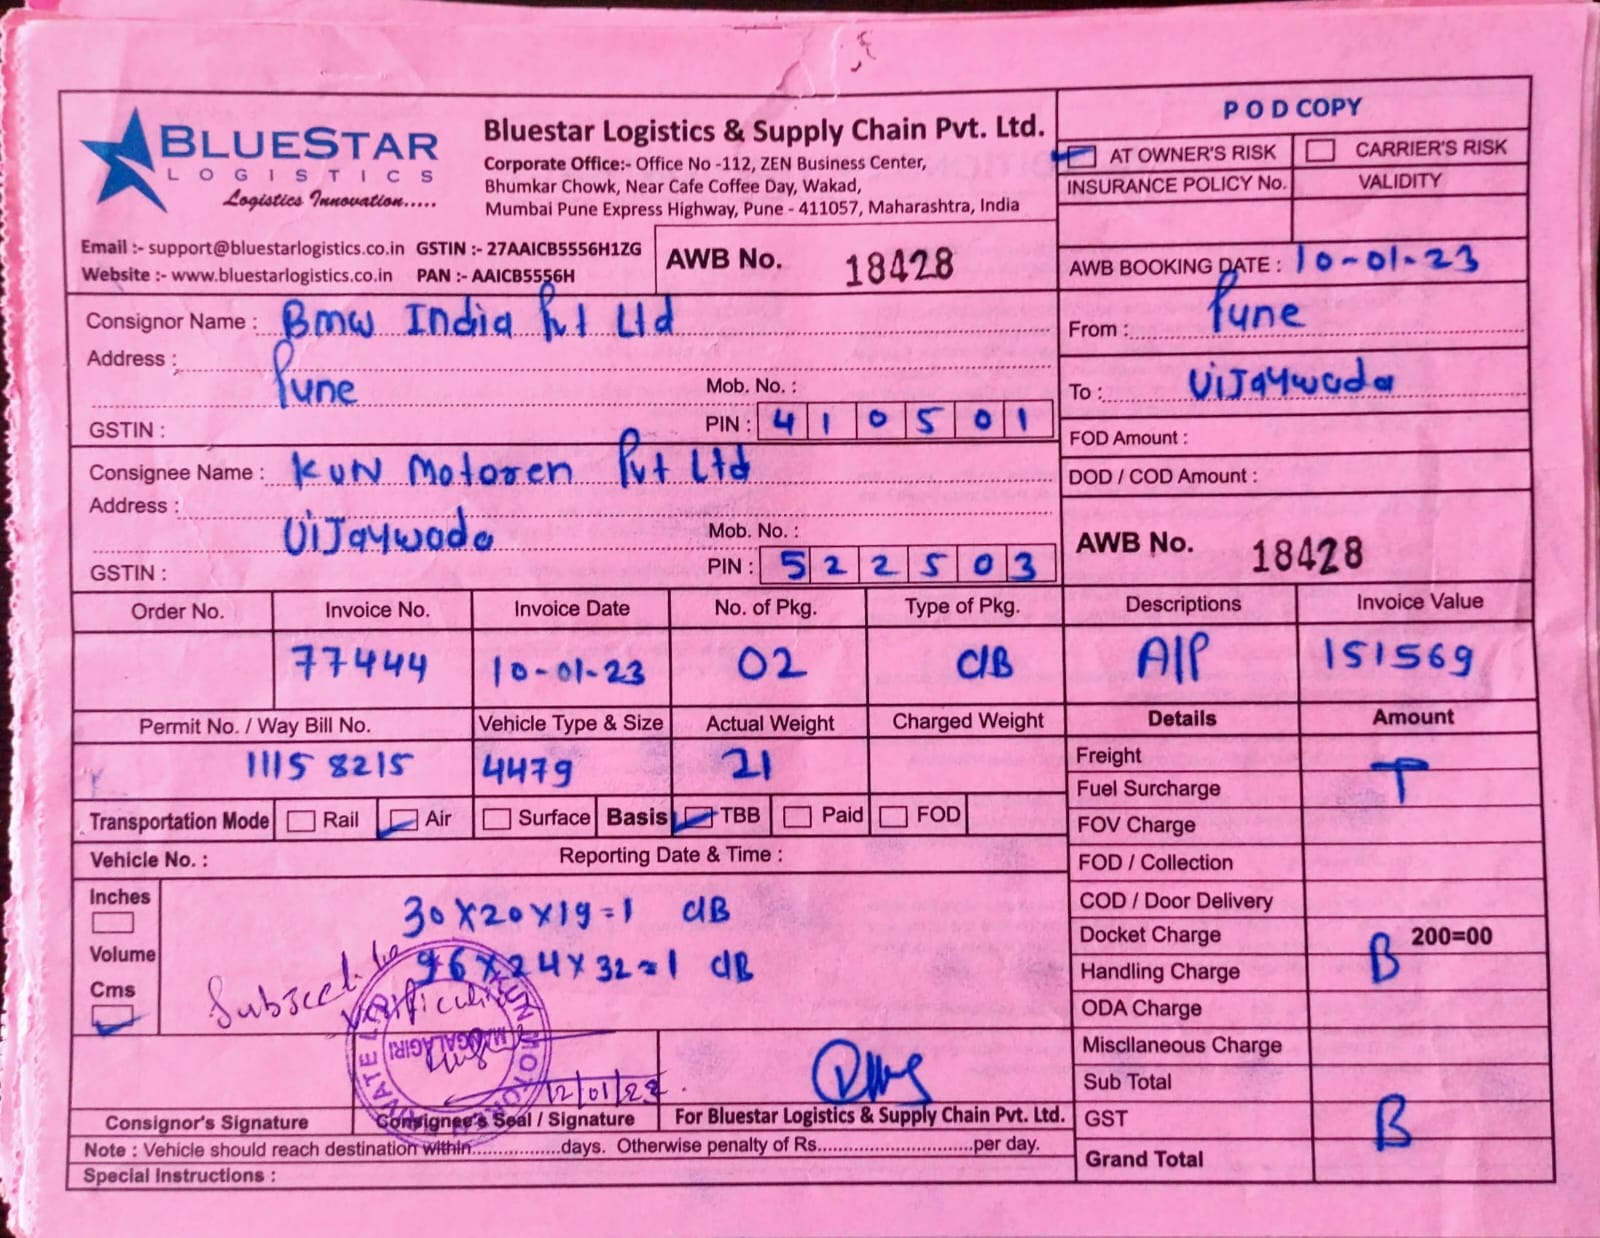 BLUESTAR
LOGISTICS
Logistics Innovation.....
Bluestar Logistics & Supply Chain Pvt. Ltd.
Corporate Office:- Office No -112, ZEN Business Center,
Bhumkar Chowk, Near Cafe Coffee Day, Wakad,
Mumbai Pune Express Highway, Pune - 411057, Maharashtra, India
POD COPY
AT OWNER'S RISK CARRIER'S RISK
INSURANCE POLICY No. VALIDITY
Email :- support@bluestarlogistics.co.in GSTIN :- 27AAICB5556H1ZG
Website :- www.bluestarlogistics.co.in PAN :- AAICB5556H
AWB No. 18428
AWB BOOKING DATE : 10-01-23
Consignor Name : Bmw India Pvt Ltd
Address :
Pune
Mob. No. :
GSTIN :
PIN : 410501
From : Pune
To : ViJaywada
FOD Amount :
DOD / COD Amount :
Consignee Name : KUN Motoren Pvt Ltd
Address :
ViJaywada
Mob. No. :
GSTIN :
PIN : 522503
AWB No. 18428
Order No. Invoice No. Invoice Date No. of Pkg. Type of Pkg. Descriptions Invoice Value
77444 10-01-23 02 C/B A/P 151569
Permit No. / Way Bill No. Vehicle Type & Size Actual Weight Charged Weight Details Amount
1115 8215 4479 21
Transportation Mode Rail Air Surface Basis TBB Paid FOD
Vehicle No. : Reporting Date & Time :
Inches
Volume
Cms
30x20x19=1 C/B
96x24x32=1 C/B
Subject to
Verification
KUN MOTOREN PRIVATE LIMITED
MANGALAGIRI
12/01/23
Consignor's Signature
Consignee's Seal / Signature
For Bluestar Logistics & Supply Chain Pvt. Ltd.
Note : Vehicle should reach destination within................days. Otherwise penalty of Rs............................per day.
Special Instructions :
Freight
T
Fuel Surcharge
FOV Charge
FOD / Collection
COD / Door Delivery
Docket Charge 200=00
B
Handling Charge
ODA Charge
Miscllaneous Charge
Sub Total
GST
B
Grand Total